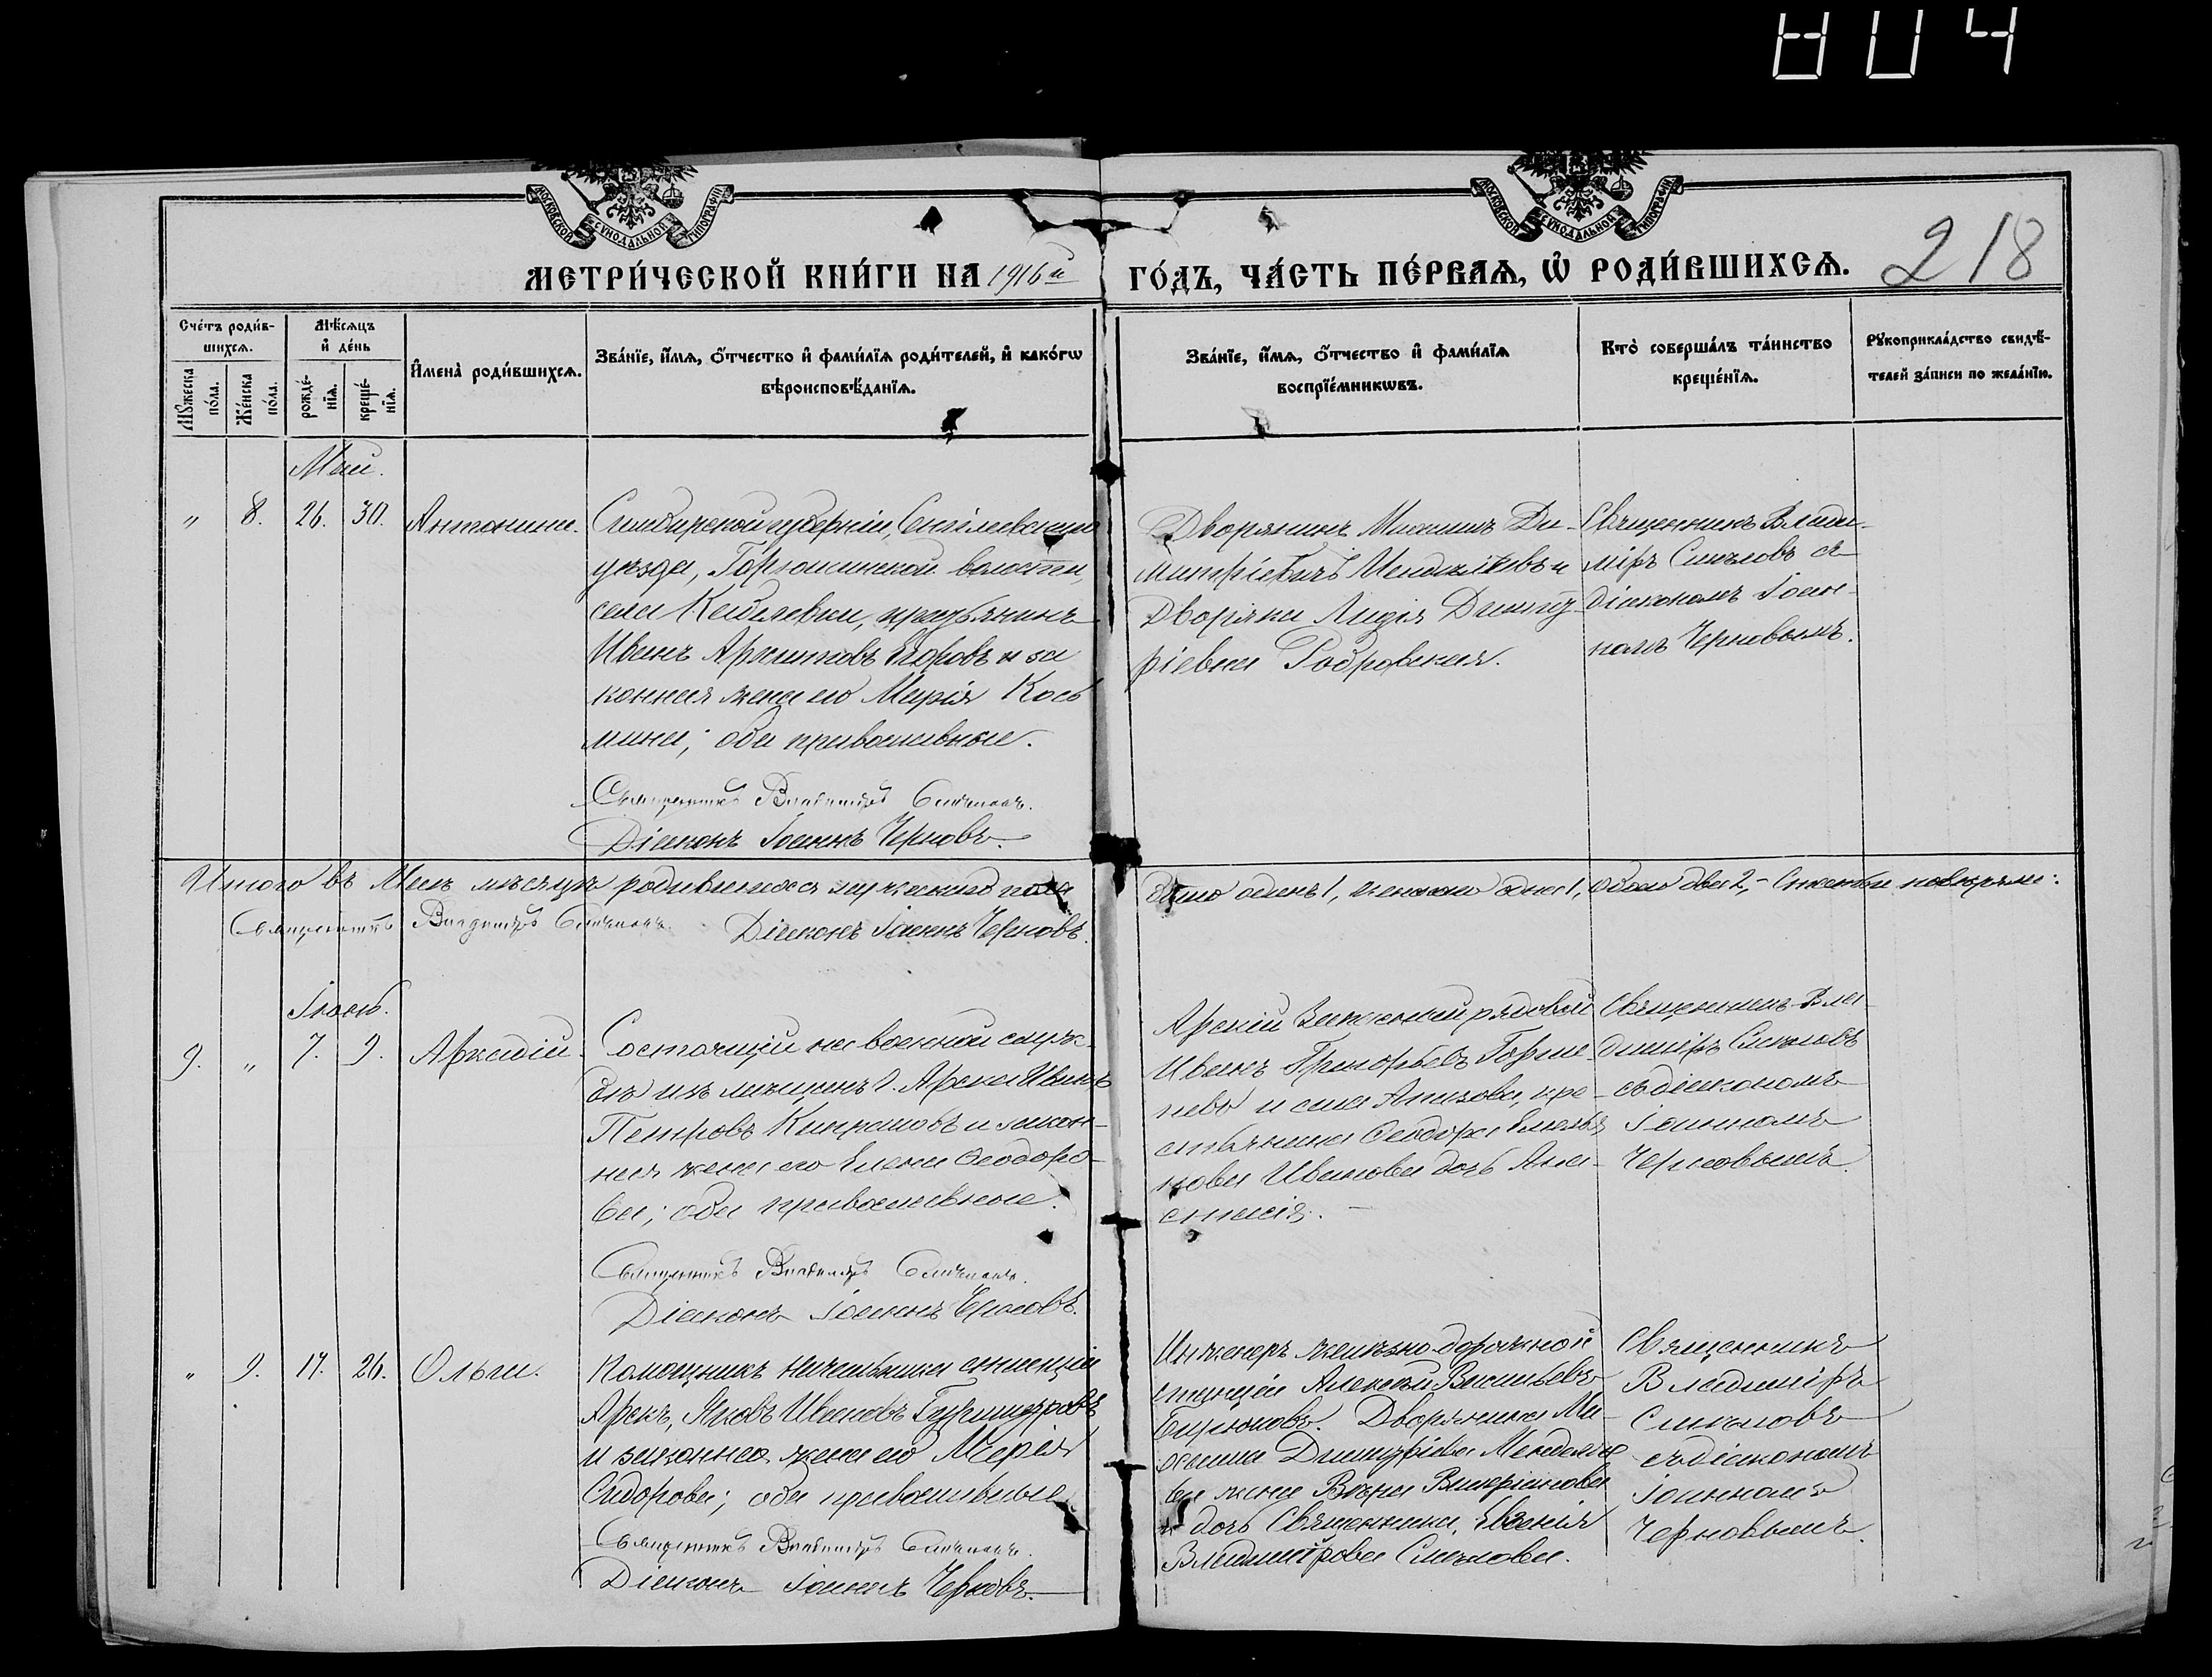 МОСКОВСКОЙ СѴНОДАЛЬНОЙ ТИПОГРАФІИ
МОСКОВСКОЙ СѴНОДАЛЬНОЙ ТИПОГРАФІИ
МЕТРИ́ЧЕСКОЙ КНИ́ГИ НА 1916й ГО́ДЪ, ЧА́СТЬ ПЕ́РВАѦ, Ѡ҆ РОДИ́ВШИХСѦ. 218
Сче́тъ роди́в-
шихсѧ.
Мꙋжеска по́ла.
Же́нска по́ла.
Мѣ́сѧцъ и҆ де́нь
рожде́-
нїѧ.
креще́-
нїѧ.
И҆мена̀ роди́вшихсѧ.
Зва́нїе, и҆́мѧ, ѻ҆́тчество и҆ фами́лїѧ роди́телей, и҆ како́гѡ
вѣроисповѣ́данїѧ.
Зва́нїе, и҆́мѧ, ѻ҆́тчество и҆ фами́лїѧ
воспрїе́мникѡвъ.
Кто̀ соверша́лъ та́инство
креще́нїѧ.
Рꙋкоприкла́дство свидѣ́-
телей за́писи по жела́нїю.
Май.
" 8. 26. 30. Антонина.
Симбирской губерніи, Сенгилевскаго
уѣзда, Горюшинской волости,
села, крестьянинъ
Иванъ Архиповъ Егоровъ и за
конная жена его Марія Козь
мина; оба православные.
Священникъ Владиміръ
Діаконъ Іоаннъ Черновъ.
Дворянинъ Михаилъ Ди-
митріевичъ и
Дворянка Лидія Димит-
ріевна
Священникъ Влади-
міръ съ
діакономъ Іоан-
номъ Черновымъ.
Итого въ Маѣ мѣсяцѣ родившихся мужескаго пола одинъ 1, женскаго одна 1, обоего два 2,
Священникъ Владиміръ Діаконъ Іоаннъ Черновъ.
Іюнь.
9. " 7. 9. Аркадій.
Состоящій на военной служ-
бѣ изъ мѣщанъ г. Арска Иванъ
Петровъ и закон-
ная жена его Елена Ѳеодоро-
ва; оба православные.
Священникъ Владиміръ
Діаконъ Іоаннъ Черновъ.
Арскій рядовой
Иванъ Григорьевъ
и села, кре-
стьянина Ѳеодора
Иванова дочь Ана-
стасія.
Священникъ Вла-
диміръ
съ діакономъ
Іоанномъ
Черновымъ.
" 9. 17. 26. Ольга.
Помощникъ начальника станціи
Арскъ, Яковъ Ивановъ
и законная жена его Марія
Сидорова; оба православные.
Священникъ Владиміръ
Діаконъ Іоаннъ Черновъ.
Инженеръ желѣзно-дорожной
станціи Алексѣй Васильевъ
Бирюковъ. Дворянина Ми-
хаила Димитріева
жена Вѣра
и дочь Священника, Евгенія
Владимірова
Священникъ
Владиміръ
съ діакономъ
Іоанномъ
Черновымъ.